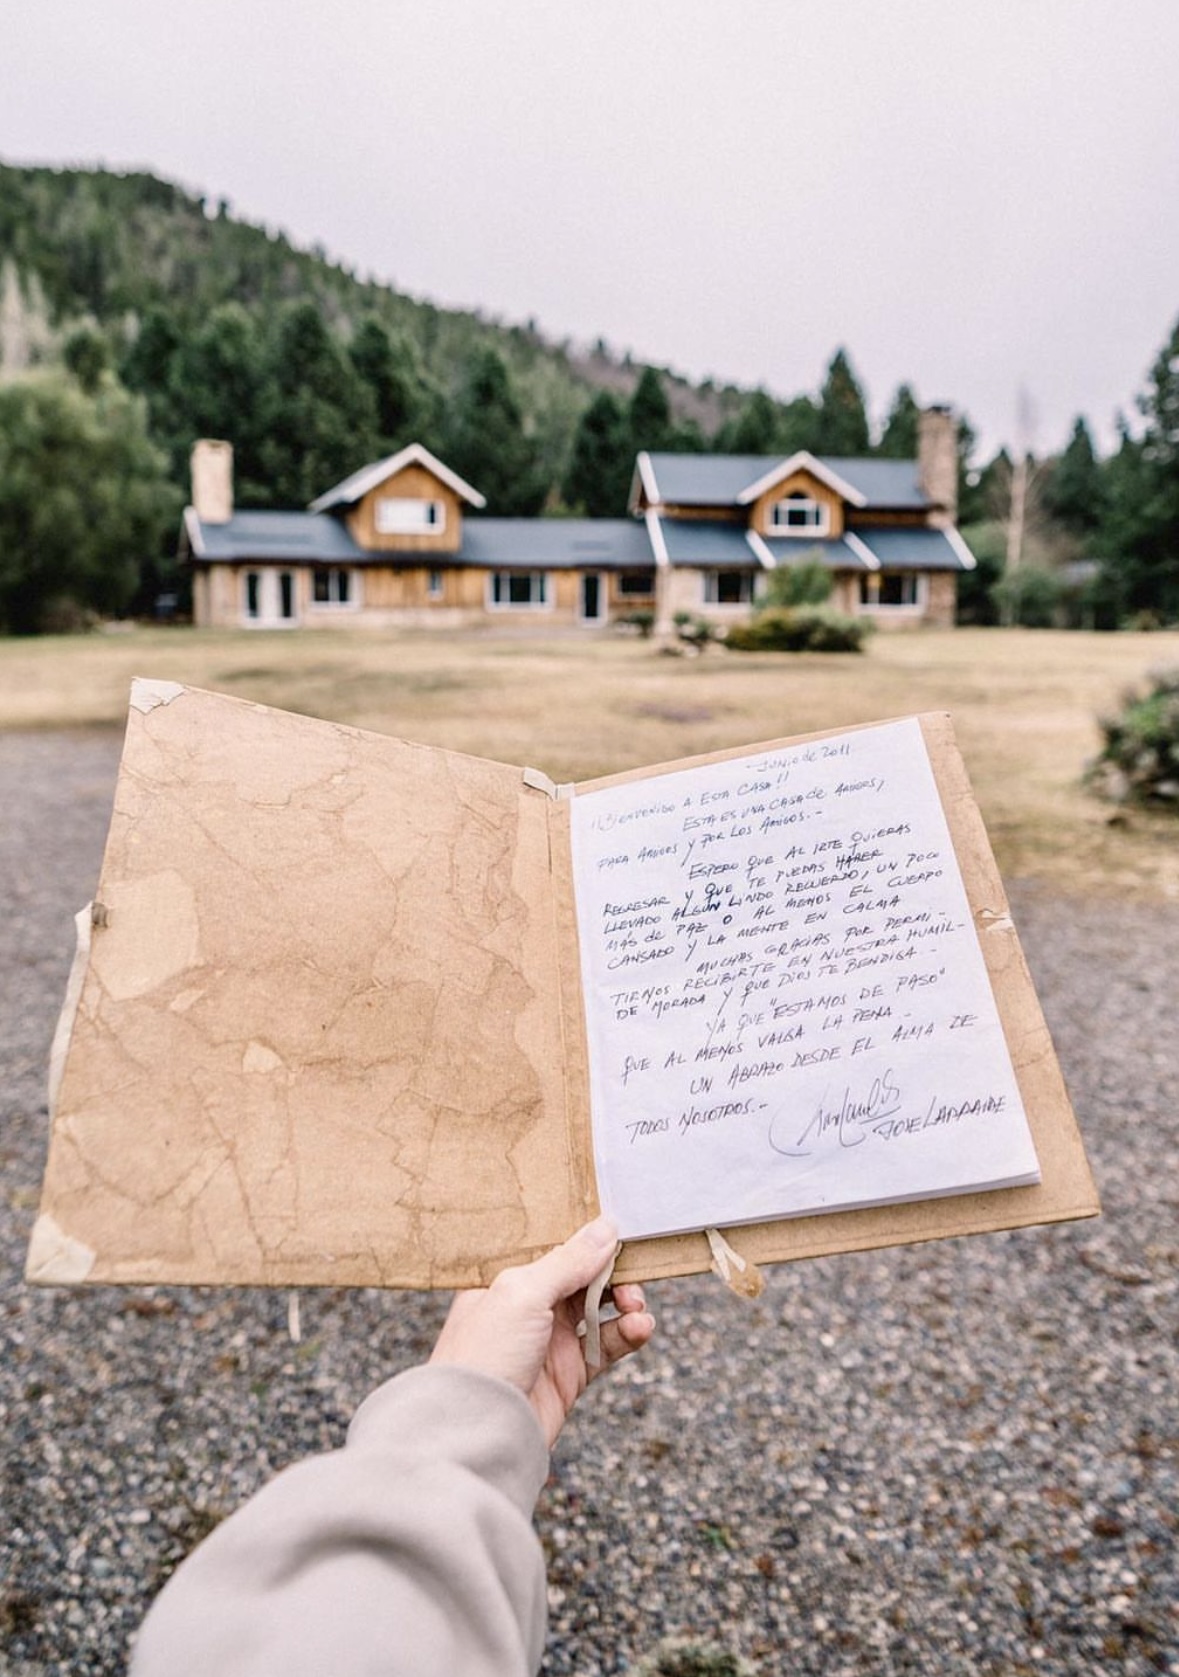 Junio de 2011
¡¡Bienvenido a esta casa!!
Esta es una casa de amigos,
para amigos y por los amigos.-
Espero que al irte quieras
regresar y que te puedas haber
llevado algún lindo recuerdo, un poco
más de paz o al menos el cuerpo
cansado y la mente en calma
Muchas gracias por permi-
tirnos recibirte en nuestra humil-
de morada y que Dios te bendiga.-
Ya que "estamos de paso"
que al menos valga la pena.-
Un abrazo desde el alma de
todos nosotros.-
Jose Larralde